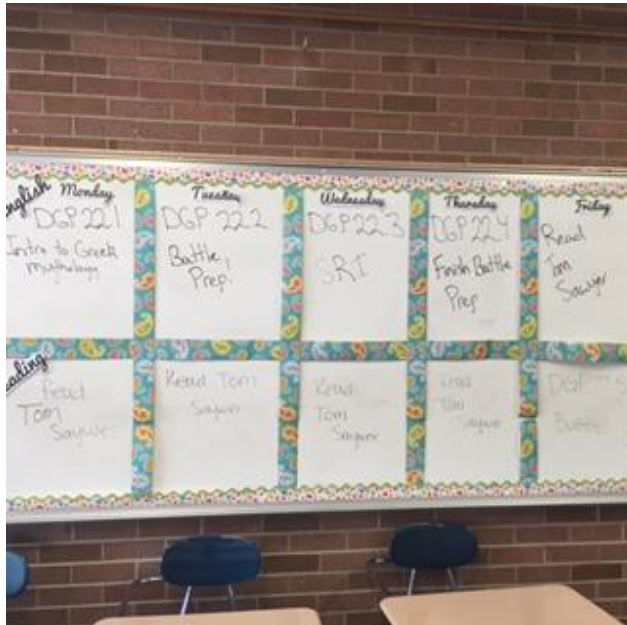 English
Monday
DGP 22.1
Intro to Greek
Mythology
Tuesday
DGP 22.2
Battle
Prep.
Wednesday
DGP 22.3
SRI
Thursday
DGP 22.4
Finish Battle
Prep
Friday
Read
Tom
Sawyer
eading
Read
Tom
Saywer
Read Tom
Saywer
Read
Tom
Saywer
Read
Tom
Saywer
DGP